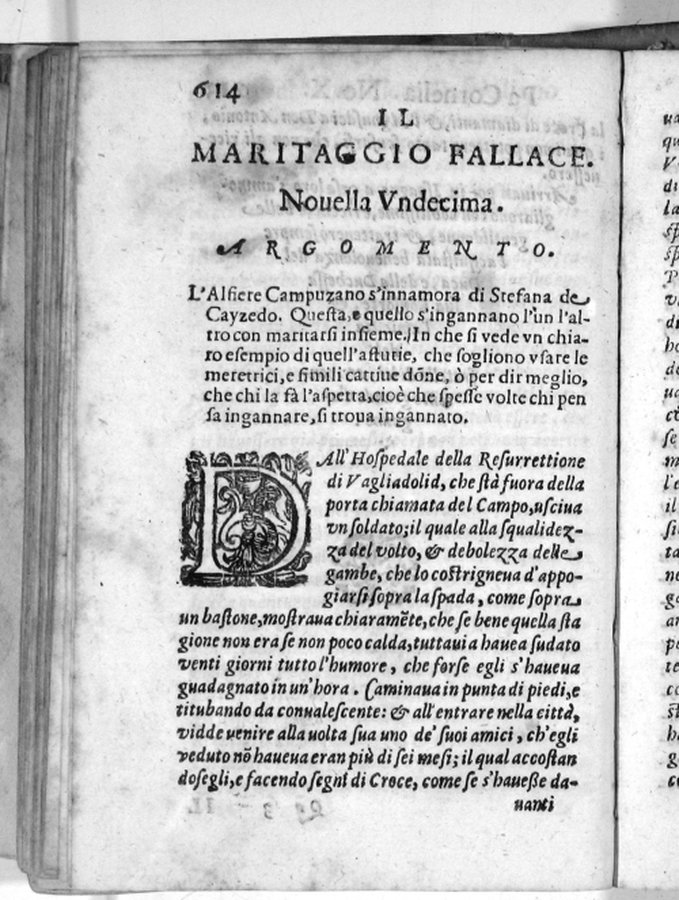 614
IL
MARITAGGIO FALLACE.
Nouella Vndecima.
ARGOMENTO.
L'Alfiere Campuzano s'innamora di Stefana de
Cayzedo. Questa, e quello s'ingannano l'un l'al-
tro con maritarsi insieme. In che si vede vn chia-
ro esempio di quell'astutie, che sogliono vsare le
meretrici, e simili cattiue dōne, ò per dir meglio,
che chi la fà l'aspetta, cioè che spesse volte chi pen
sa ingannare, si troua ingannato.
DAll'Hospedale della Resurrettione
di Vagliadolid, che stà fuora della
porta chiamata del Campo, usciua
vn soldato; il quale alla squalidez-
za del volto, & debolezza delle
gambe, che lo costrigneua d'appo-
giarsi sopra la spada, come sopra
un bastone, mostraua chiaramēte, che se bene quella sta
gione non era se non poco calda, tuttauia hauea sudato
venti giorni tutto l'humore, che forse egli s'haueua
guadagnato in un'hora. Caminaua in punta di piedi, e
titubando da conualescente: & all'entrare nella città,
vidde venire alla uolta sua uno de' suoi amici, ch'egli
veduto nō haueua eran più di sei mesi; il qual accostan
dosegli, e facendo segni di Croce, come se s'hauesse da-
uanti